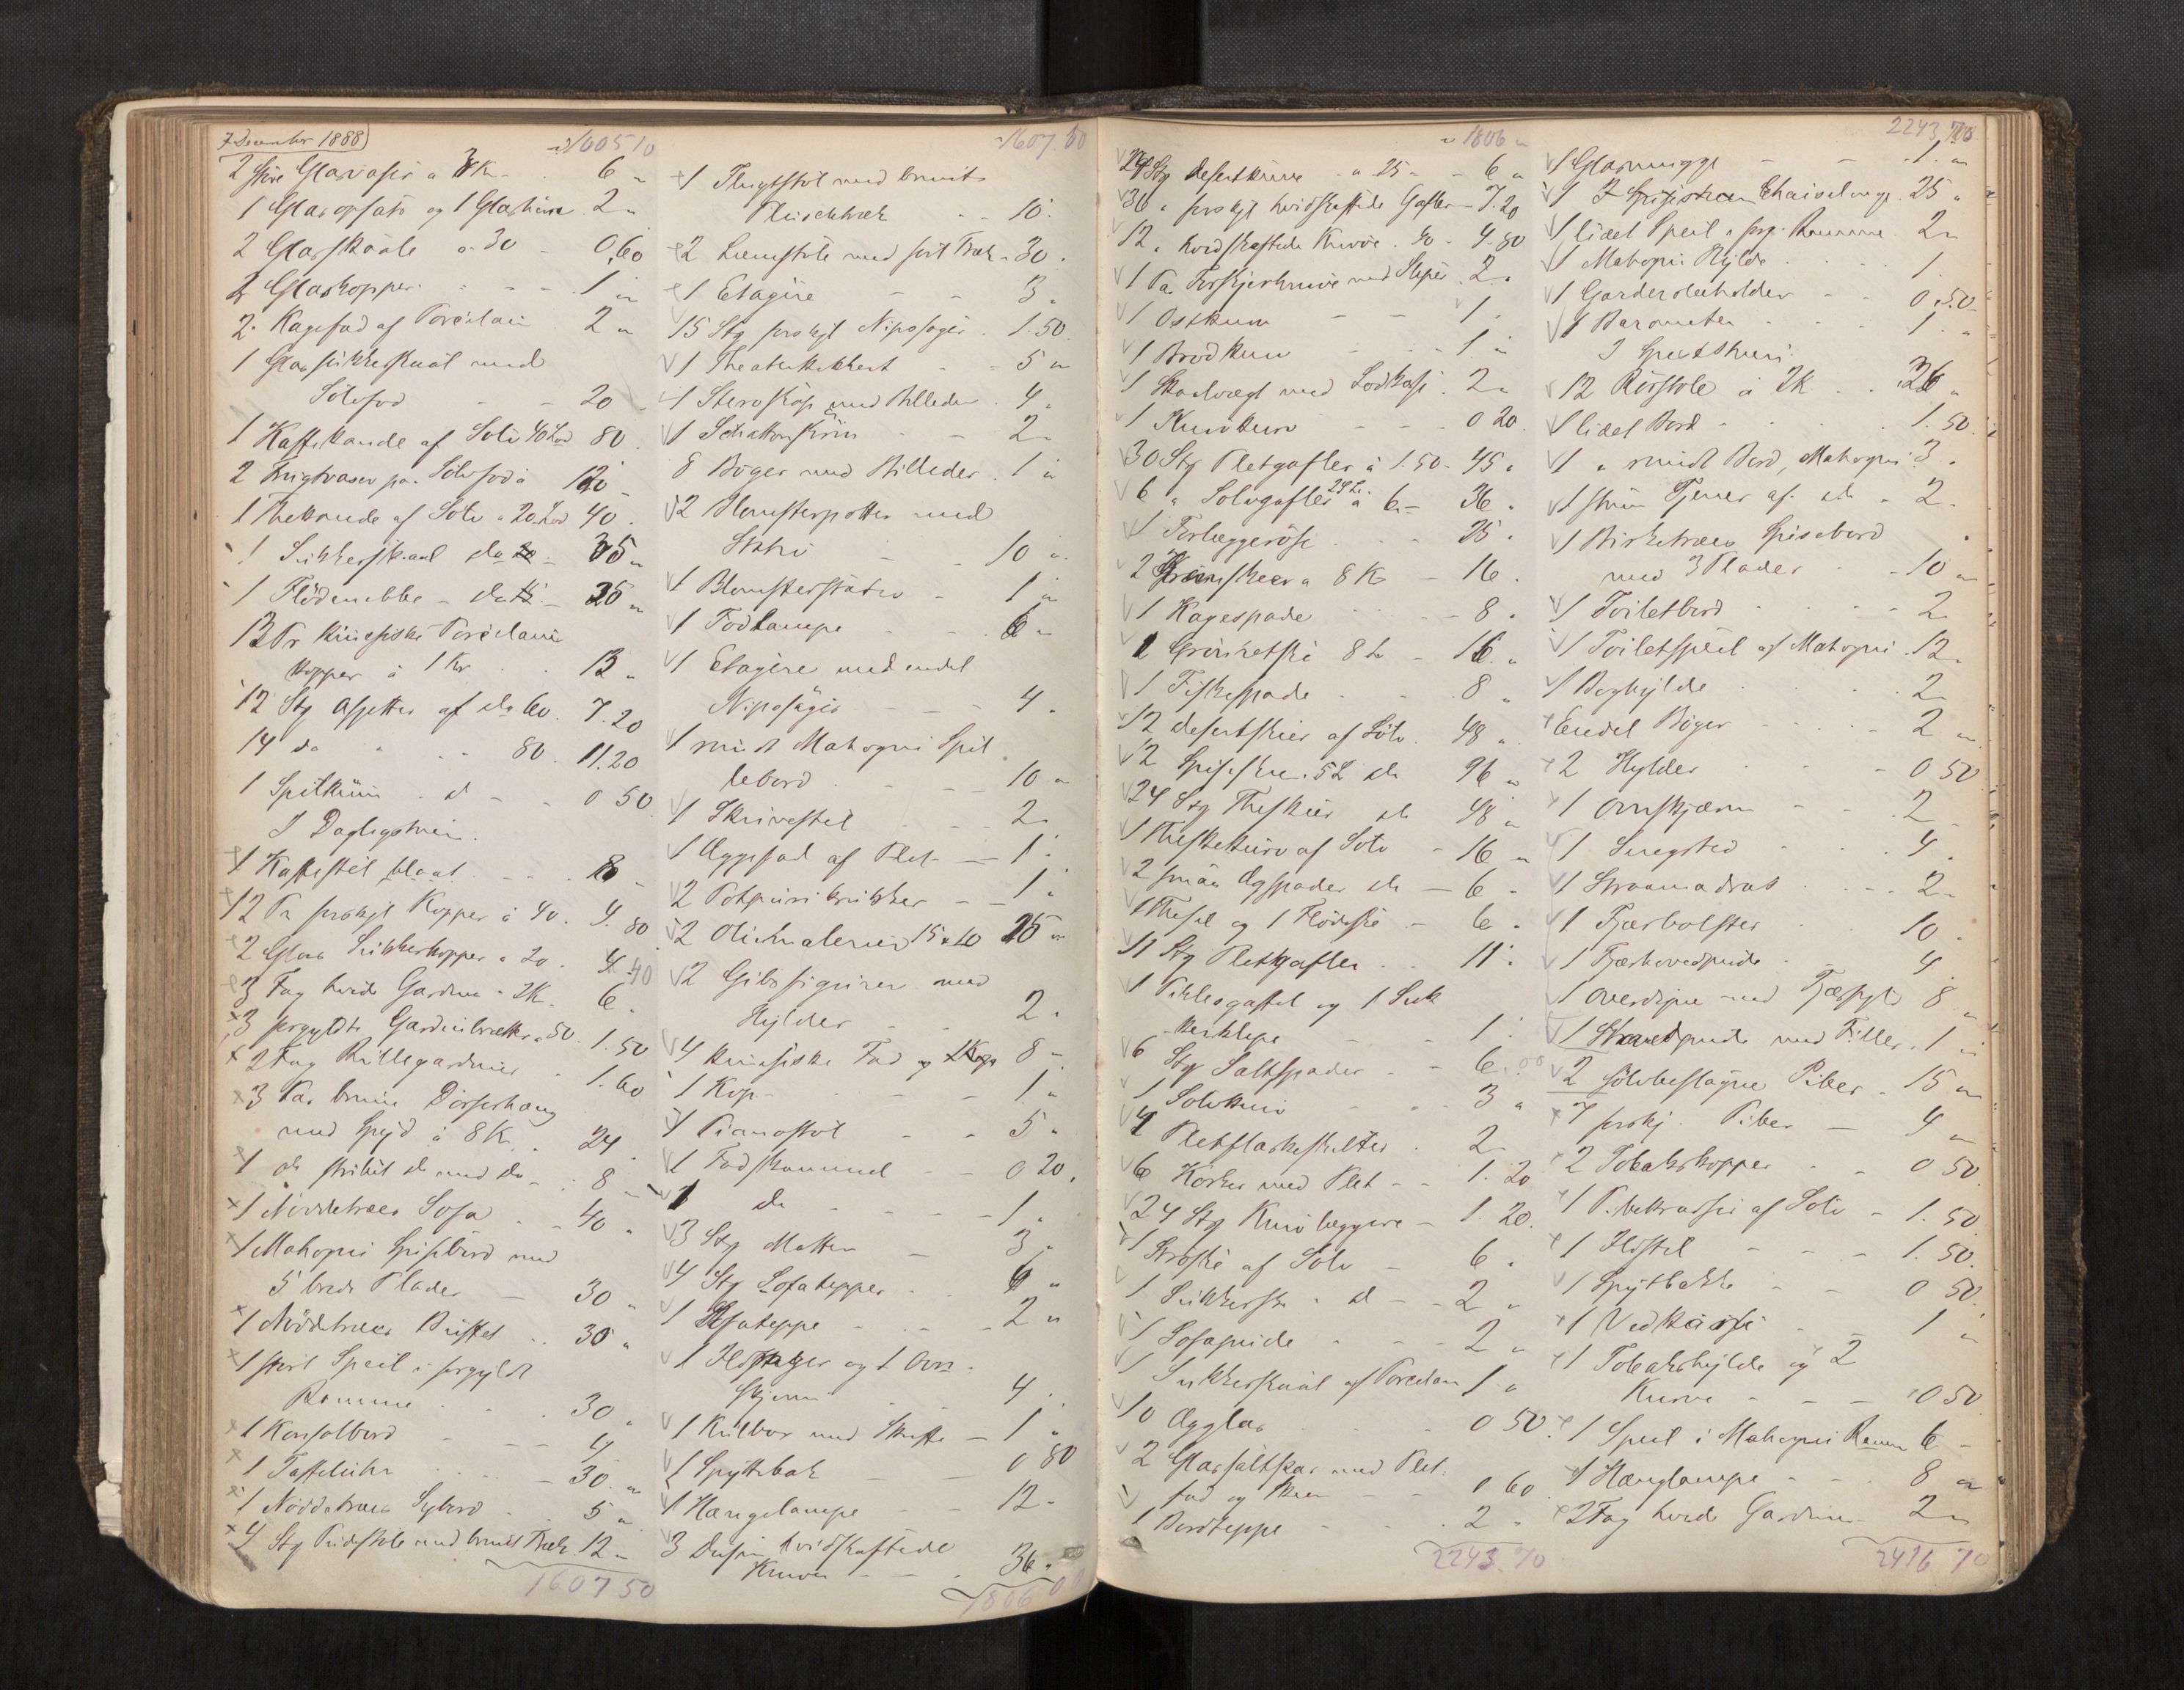 7 December 1888
100510
2 store Glasvaser a 3 Kr - 6 "
1 Glasopsats og 1 Glas 2 "
2 Glasskaale a 30 - 0,60
2 Glaskopper - 1 "
2 Kagefad af Porcelain 2 "
1 Glas sukkerskaal med
Sölvfod - 20
1 Kaffekande af Sölv 40 Lod 80
2 Frugtvaser paa Sölvfod
1 Thekande af Sölv 20 Lod 40
1 Sukkerskaal do 35 "
1 Flödemukke - do - 25 "
12 Pr kinesiske Porcelains
kopper à 1 Kr - 12 "
12 Stg Asjetter af do 60. 7.20
14 do " 80. 11.20
1 Spilkum - d - 0 50
I Dagligstuen.
1 Kaffestel blaat - 8
12 Pr forskjl Kopper à 40. 4.80
2 Glas Sukkerkopper a 20. 40
3 Fag hvide Gardiner - 2K. 6.
3 forgyldte Gardinbretter a 50. 1.50
2 Fag Rullegardiner - 1.60
3 Par brune Dörforhæng
med Spyd à 8 K. 24
1 do stribet do med do - 8
1 Nöddetræes Sofa - 40 "
1 Mahogni Spisebord med
5 brede Plader - 30 "
1 Nöddetræes Buffet - 30 "
1 stort Speil i forgyldt
Ramme - 30 "
1 Konsolbord - 4
1 Taffeluhr - 30 "
1 Nöddetræes Sybord - 5 "
4 Stg Pudestole med brunt Træk 12 "
160750
1607.50
1 Flugtstol med brunt
Plüschtræk - 10.
2 Lænestole med sort Træk - 30.
1 Etagère - 3 "
15 Stg forskjl Nipssager - 1.50
1 Theaterkikkert - 5 "
1 Steroskop med Billeder - 4 "
1 Schatterskrin - 2 "
8 Böger med Billeder - 1 "
2 Blomsterpotter med
Stativ - 10 "
1 Blomsterstativ - 1 "
1 Fodlampe - 6 "
1 Etagère med endel
Nipssager - 4 "
1 rundt Mahogni Spil
lebord - 10 "
1 Skrivestel - 2 "
1 Æggefad af Plet - 1 "
2 Potpuri krukker - 1 "
2 Oliemalerier 15 a 10 25 "
2 Gibsfigurer med
Hylder - 2 "
4 kinesiske Fad og 1 Kop 8 "
1 Kop - 1 "
1 Pianostol - 5 "
1 Fodskammel - 0 20.
1 do - 1 "
3 Stg Matter - 3 "
4 Stg Sofatepper - 6 "
1 Sofateppe - 2 "
1 Ildstager og 1 Ovn
skjerm - 4 "
1 Kulbox med Skuffe - 1 "
1 Spyttebak - 0 80
1 Hængelampe - 12 -
3 Dusin hvidskaftede
Knive - 36 "
1806
1806 "
24 Stg desertknive - a 25 " - 6 "
36 " forskjl hvidskaftede Gafler - 7.20
12 " hvidskaftede Knive - 40 - 4.80
1 Par Forskjerknive med Steper - 2 "
1 Ostkurv - 1.
1 Brödkurv - 1 "
1 Skaalvægt med Lodkasse - 2 "
1 Knivkurv - 0 20
30 Stg Pletgafler à 1.50 - 45 "
6 " Solvgafler 24 L. à 6 - 36 "
1 Forlæggeröse - 25 "
2 Grönskeer a 8 K - 16.
1 Kagespade - 8 "
2 Grönsetske 8 L - 16 "
1 Fiskespade - 8 "
12 desertskeer af Sölv - 48 "
12 Spiseskeer 5 L do 96 "
24 Stg Theskeer do 48 "
1 Theskekurv af Sölv - 16 "
2 smaa Ægspader do - 6 "
1 Thesil og 1 Flödeske - 6 "
11 Stg Pletgafler - 11 "
1 Piklesgaffel og 1 Suk
kerklype - 1 "
6 Stg Saltspader - 6.00
1 Solvkniv - 3 "
4 Pletflaskeskilter - 2
6 Körker med Plet - 1.20
24 Stg Knivlæggere - 1.20.
1 Ströske af Sölv - 6 "
1 Sukkerske - d - 2 "
1 Sofapude - 2 "
1 Sukkerskaal af Porcelan 1 "
10 Ægglas - 0 50
2 Glassaltkar med Plet
fad og skeer - 0 60
1 Bordteppe - 2 "
2243.70
2243,70
1 Glasmugge - 1 "
1 Chaiselonge - 25 "
1 lidet Speil i forg. Ramme - 2 "
1 Mahogni Hylde - 1.
1 Garderobeholder - 0.50
1 Barometer - 1 "
I Spisestuen.
12 Rörstole à 3 K - 36 "
1 lidet Bord - 1.50
1 " rundt Bord, Mahogni 3 "
1 stum Tjener af do - 2.
1 Birketræes Spisebord
med 3 Plader - 10 "
1 Toiletbord - 2
1 Toiletspeil af Mahogni - 12 "
1 Boghylde - 2
Endel Böger - 2 "
2 Hylder - 0 50
1 Ovnskjærm - 2
1 Sengsted - 4.
1 Straamadras - 2 "
1 Fjærbolster - 10.
1 Fjærhovedpude - 4
1 Overdyne med Fjærfyld 8 "
1 Hovedpude med Filler. 1 "
2 sölvbeslagne Piber - 15 "
7 forskj. Piber - 4 "
2 Tobakskopper - 0 50
1 Pibekradser af Sölv - 1.50
1 Ildstel - 1.50.
1 Spytbakke - 0 50
1 Vedkasse - 1 "
1 Tobakshylde og 2
Kurve - 0 50
1 Speil i Mahogni Ramme 6 -
1 Hænglampe - 8 "
2 Fag hvide Gardiner - 2 "
2416 70